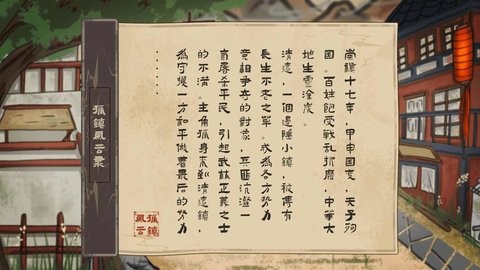 孤鎮風云录
崇禎十七年，甲申国变，天子殉
国。百姓饱受战乱折磨，中華大
地生靈涂炭。
清遠，一個邊陲小鎮，被傳有
長生不老之草。成為各方势力
竞相争夺的對象，兵匪沆瀣一
氣屠杀平民，引起武林正義之士
的不滿。主角孤身来到清遠鎮，
為守護一方和平做着最后的努力
......
孤鎮
風云